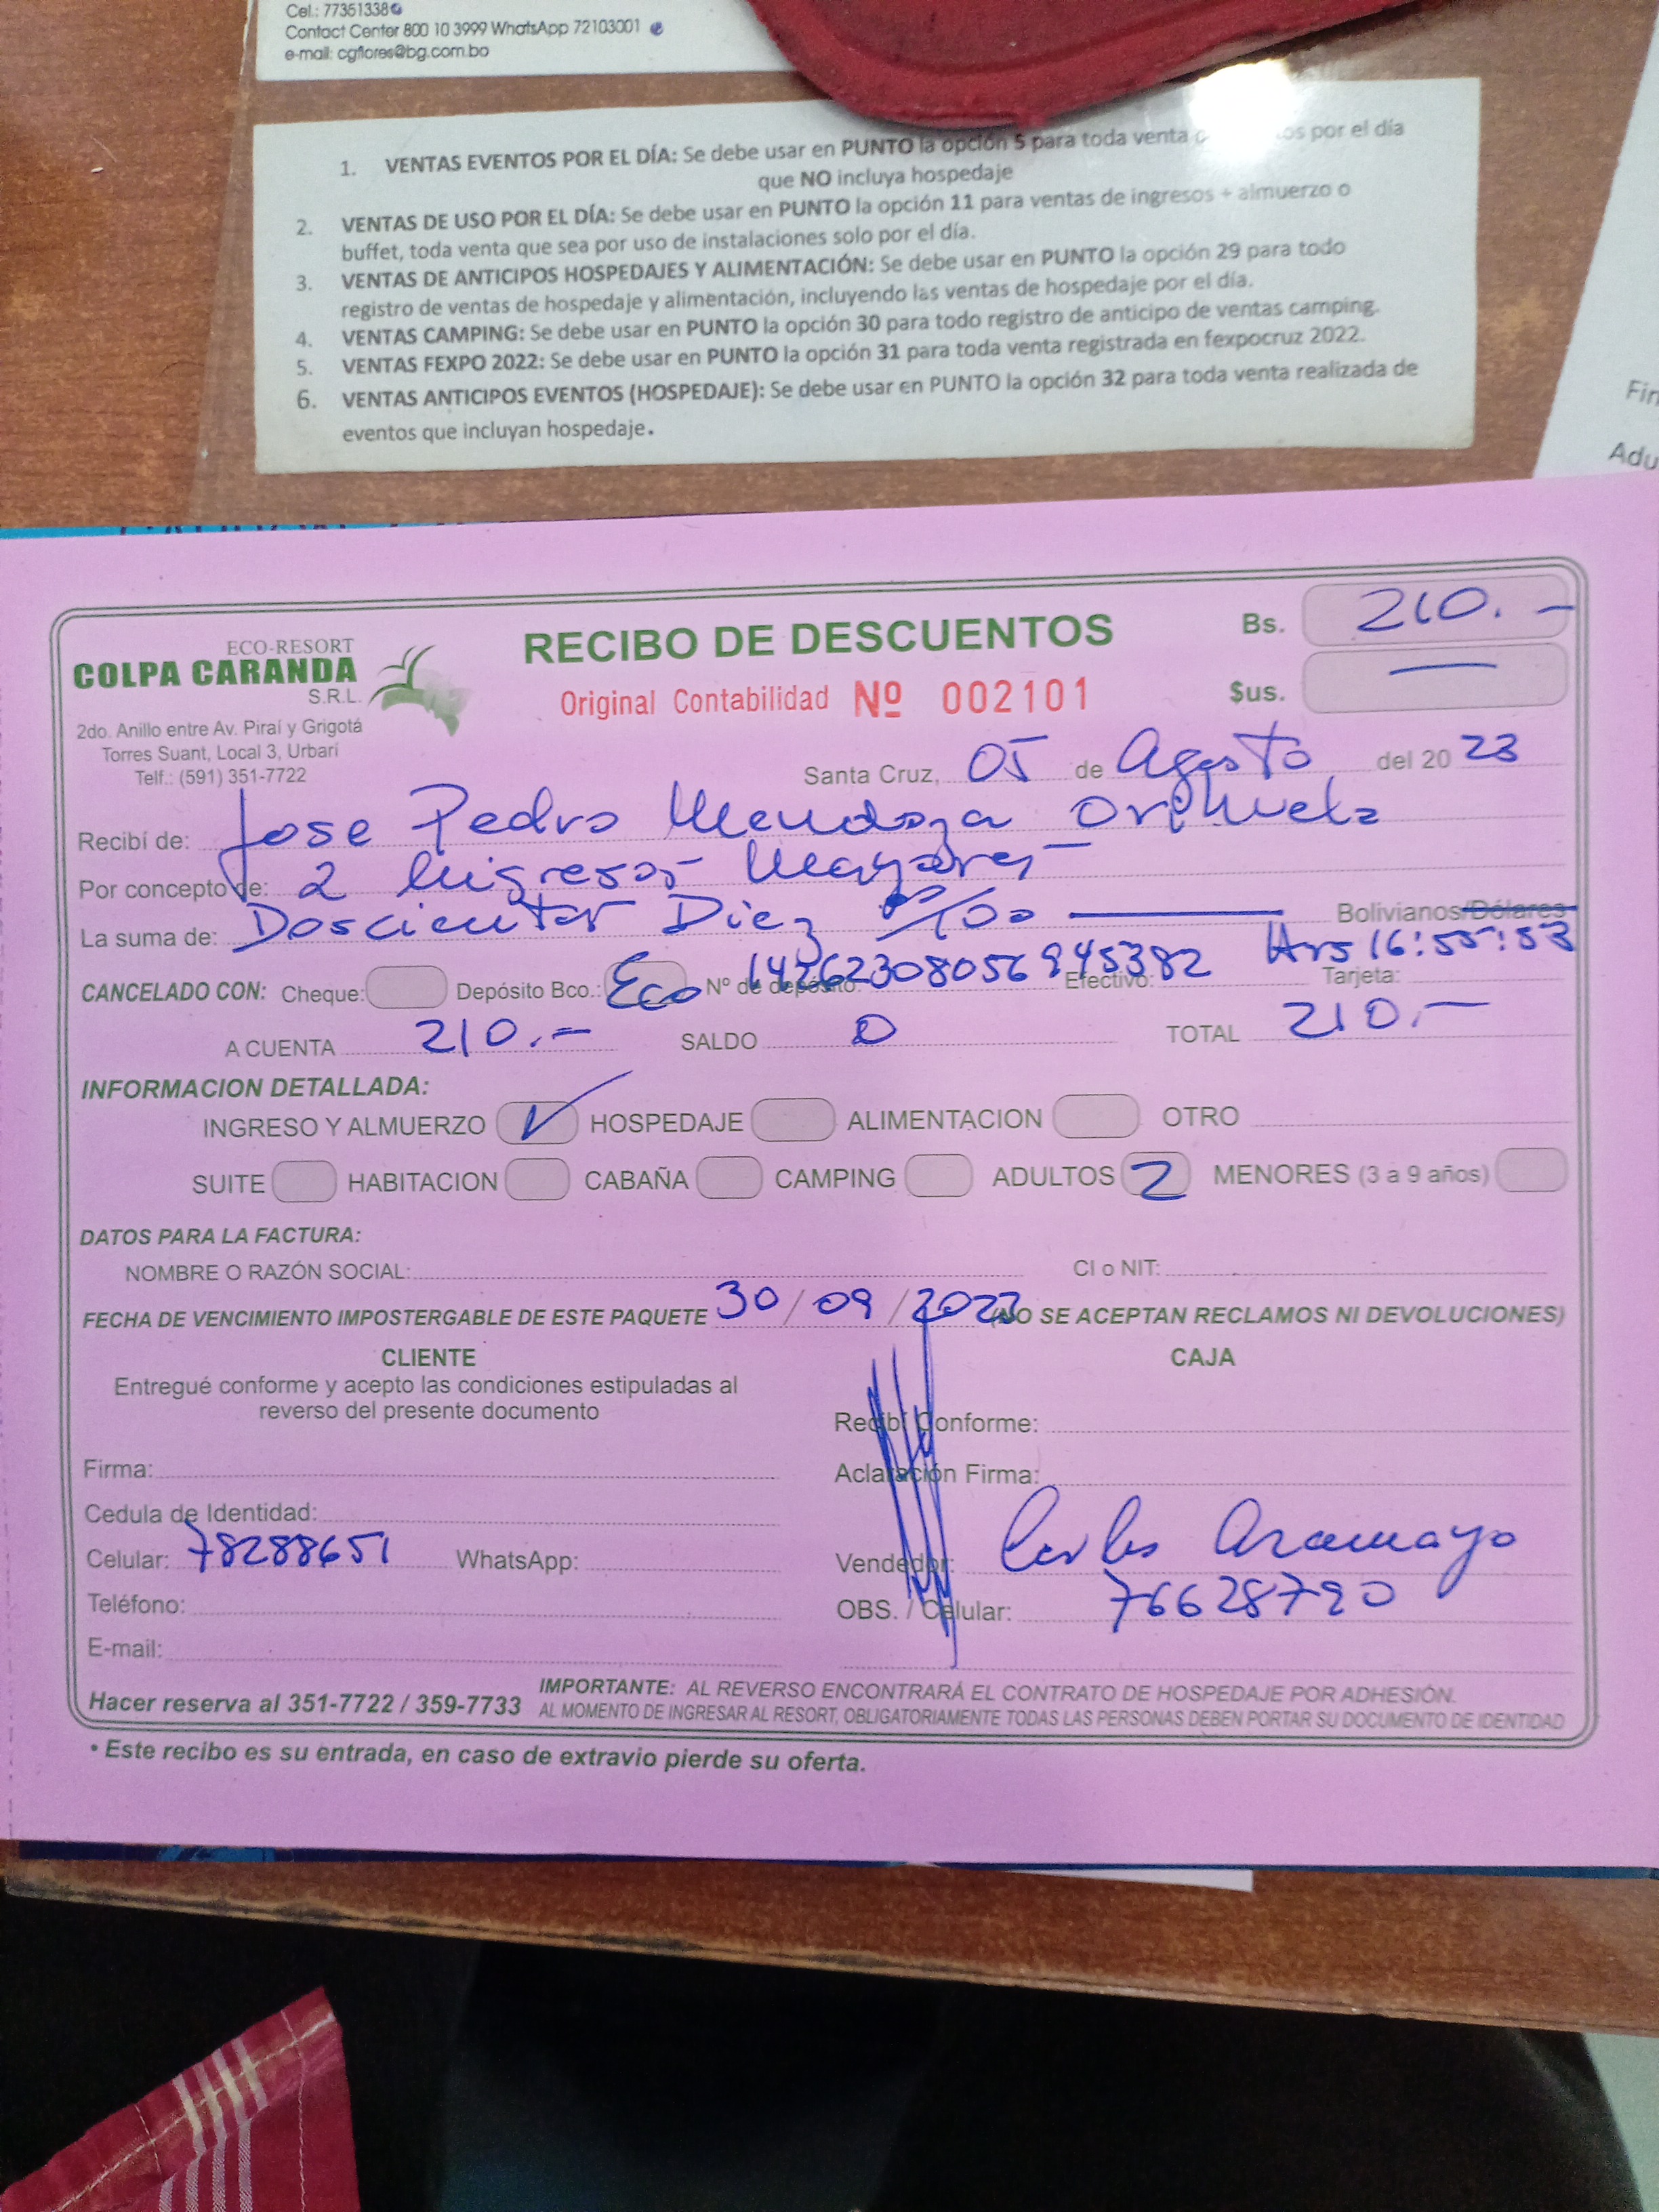 Cel.: 77351338
Contact Center 800 10 3999 WhatsApp 72103001
e-mail: cgflores@bg.com.bo
1. VENTAS EVENTOS POR EL DÍA: Se debe usar en PUNTO la opción 5 para toda venta por el día
que NO incluya hospedaje
2. VENTAS DE USO POR EL DÍA: Se debe usar en PUNTO la opción 11 para ventas de ingresos + almuerzo o
buffet, toda venta que sea por uso de instalaciones solo por el día.
3. VENTAS DE ANTICIPOS HOSPEDAJES Y ALIMENTACIÓN: Se debe usar en PUNTO la opción 29 para todo
registro de ventas de hospedaje y alimentación, incluyendo las ventas de hospedaje por el día.
4. VENTAS CAMPING: Se debe usar en PUNTO la opción 30 para todo registro de anticipo de ventas camping.
5. VENTAS FEXPO 2022: Se debe usar en PUNTO la opción 31 para toda venta registrada en fexpocruz 2022.
6. VENTAS ANTICIPOS EVENTOS (HOSPEDAJE): Se debe usar en PUNTO la opción 32 para toda venta realizada de
eventos que incluyan hospedaje.
Fin
Adu
ECO-RESORT
COLPA CARANDA
S.R.L.
2do. Anillo entre Av. Piraí y Grigotá
Torres Suant, Local 3, Urbarí
Telf.: (591) 351-7722
RECIBO DE DESCUENTOS
Original Contabilidad Nº 002101
Bs. 210.-
$us. —
Santa Cruz, 05 de Agosto del 20 23
Recibí de: Jose Pedro Mendoza Orihuela
Por concepto de: 2 Ingresos Mayores
La suma de: Doscientos Diez 00/100 Bolivianos/Dólares
CANCELADO CON: Cheque: Depósito Bco.: Eco Nº de depósito: 14262308056945382 Efectivo: Hrs 16:55:53 Tarjeta:
A CUENTA 210.- SALDO 0 TOTAL 210.-
INFORMACION DETALLADA:
INGRESO Y ALMUERZO ✓ HOSPEDAJE ALIMENTACION OTRO
SUITE HABITACION CABAÑA CAMPING ADULTOS 2 MENORES (3 a 9 años)
DATOS PARA LA FACTURA:
NOMBRE O RAZÓN SOCIAL: CI o NIT:
FECHA DE VENCIMIENTO IMPOSTERGABLE DE ESTE PAQUETE 30/09/2023 (NO SE ACEPTAN RECLAMOS NI DEVOLUCIONES)
CLIENTE
Entregué conforme y acepto las condiciones estipuladas al
reverso del presente documento
Firma:
Cedula de Identidad:
Celular: 78288651 WhatsApp:
Teléfono:
E-mail:
CAJA
Recibí Conforme:
Aclaración Firma:
Vendedor: Carlos Aramayo
OBS. / Celular: 76628790
Hacer reserva al 351-7722 / 359-7733
IMPORTANTE: AL REVERSO ENCONTRARÁ EL CONTRATO DE HOSPEDAJE POR ADHESIÓN.
AL MOMENTO DE INGRESAR AL RESORT, OBLIGATORIAMENTE TODAS LAS PERSONAS DEBEN PORTAR SU DOCUMENTO DE IDENTIDAD
• Este recibo es su entrada, en caso de extravio pierde su oferta.